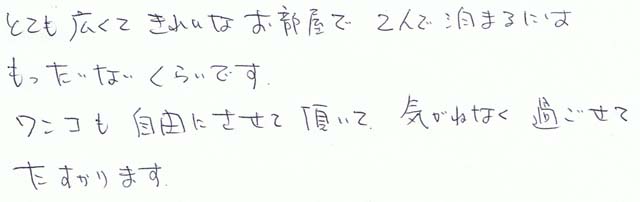 とても広くてきれいなお部屋で 2人で泊まるには
もったいないくらいです.
ワンコも自由にさせて頂いて. 気がねなく過ごせて
たすかります.